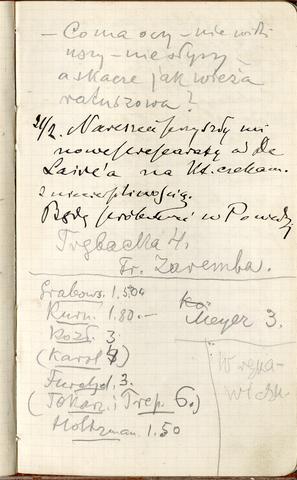 — Co ma oczy – nie widzi
uszy – nie słyszy
a skacze jak wieża
ratuszowa?
21/2. Nareszcie przyszły mi
nowe preparaty od De
Laire'a na Ut. czekam.
z niecierpliwością.
Będę próbować w
Trębacka 4.
Fr. Zaremba.
Grabows. 1.50
Kurn. 1.80.—
Kozł. 3
(Karol 4)
3.
(Tokarz. i Trep. 6.)
Holtzman. 1.50
Meyer 3.
W ręka-